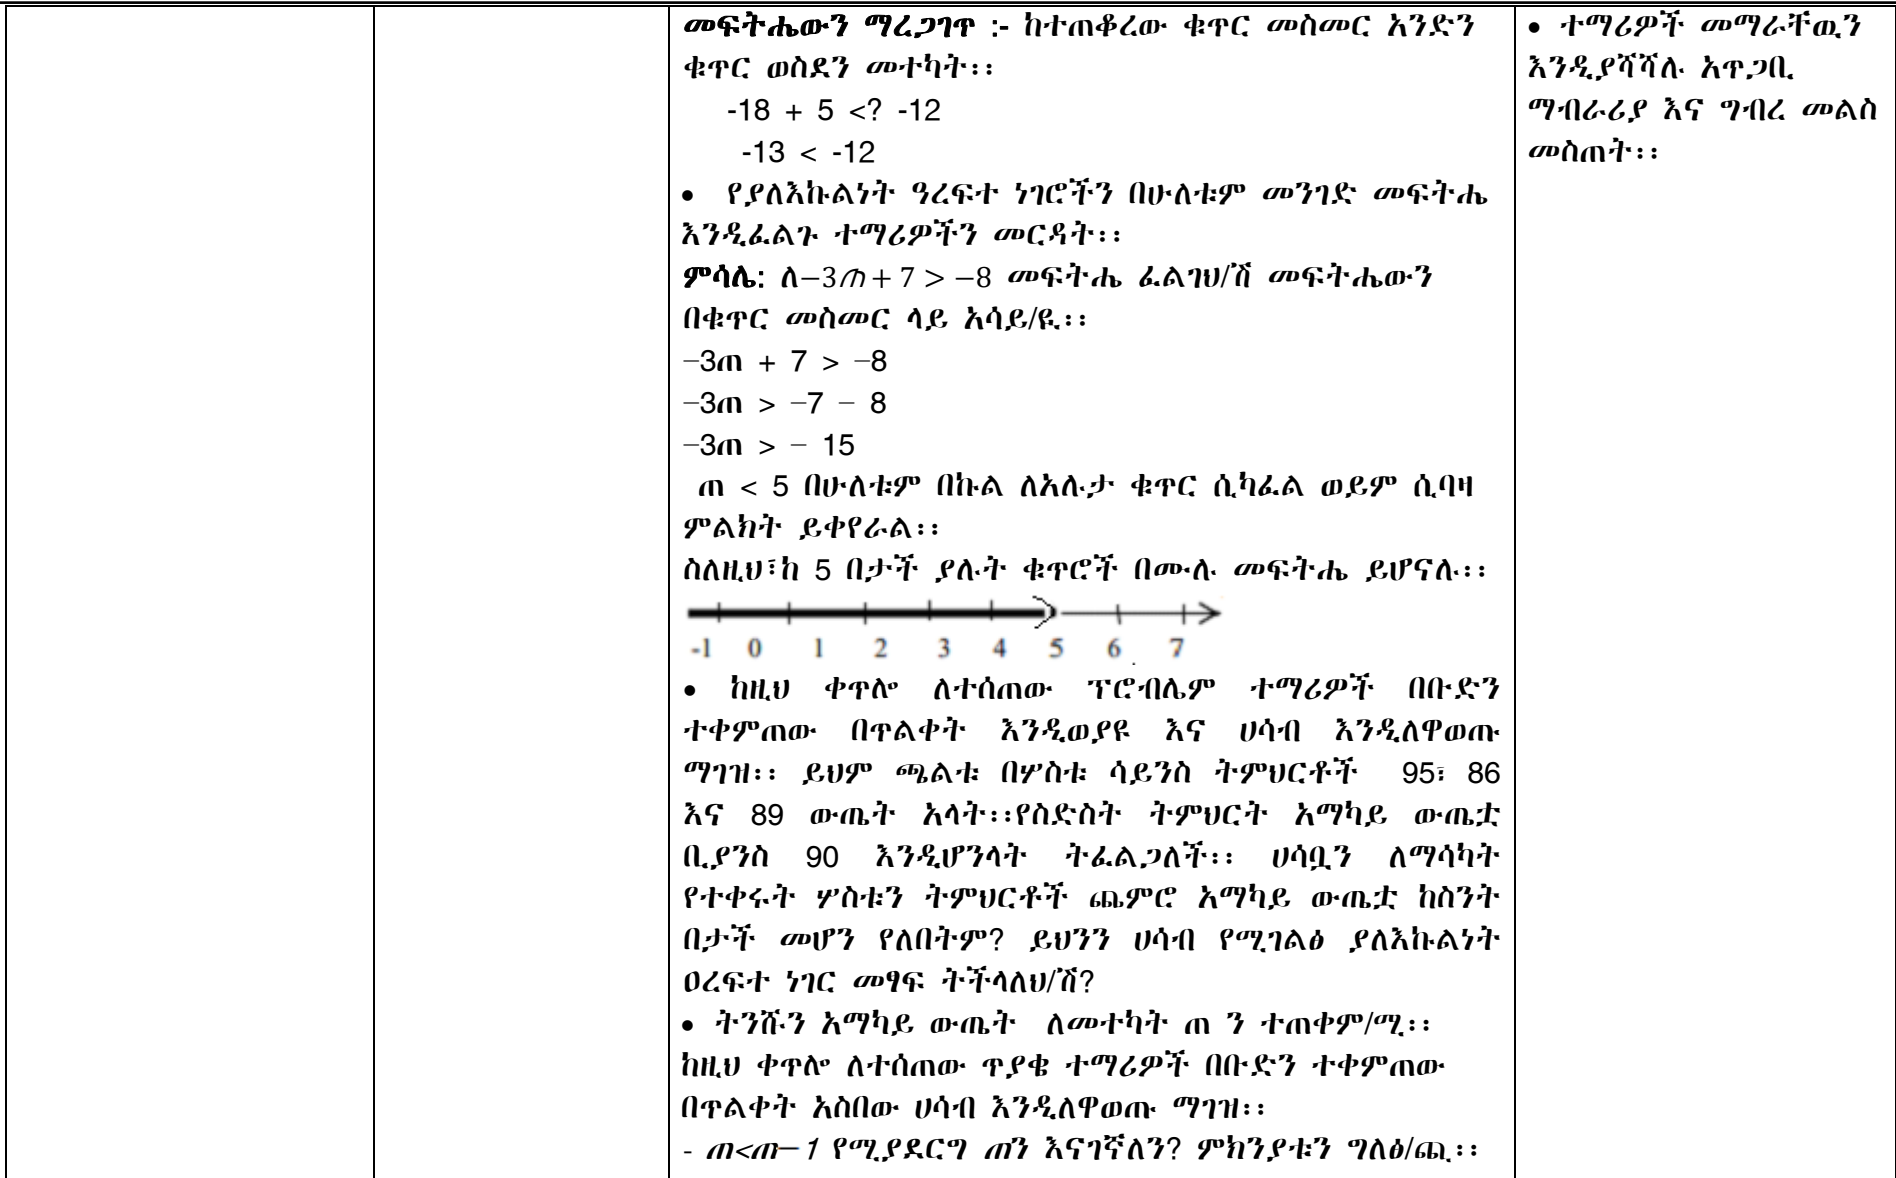 መፍትሔውን ማረጋገጥ :- ከተጠቆረው ቁጥር መስመር አንድን
ቁጥር ወስደን መተካት፡፡
-18 + 5 <? -12
-13 < -12
• የያለእኩልነት ዓረፍተ ነገሮችን በሁለቱም መንገድ መፍትሔ
እንዲፈልጉ ተማሪዎችን መርዳት፡፡
ምሳሌ: ለ−3ጠ + 7 > −8 መፍትሔ ፈልገህ/ሽ መፍትሔውን
በቁጥር መስመር ላይ አሳይ/ዪ፡፡
−3ጠ + 7 > −8
−3ጠ > −7 − 8
−3ጠ > − 15
ጠ < 5 በሁለቱም በኩል ለአሉታ ቁጥር ሲካፈል ወይም ሲባዛ
ምልክት ይቀየራል፡፡
ስለዚህ፣ከ 5 በታች ያሉት ቁጥሮች በሙሉ መፍትሔ ይሆናሉ፡፡
-1 0 1 2 3 4 5 6 7
• ከዚህ ቀጥሎ ለተሰጠው ፕሮብሌም ተማሪዎች በቡድን
ተቀምጠው በጥልቀት እንዲወያዩ እና ሀሳብ እንዲለዋወጡ
ማገዝ፡፡ ይህም ጫልቱ በሦስቱ ሳይንስ ትምህርቶች 95፣ 86
እና 89 ውጤት አላት፡፡የስድስት ትምህርት አማካይ ውጤቷ
ቢያንስ 90 እንዲሆንላት ትፈልጋለች፡፡ ሀሳቧን ለማሳካት
የተቀሩት ሦስቱን ትምህርቶች ጨምሮ አማካይ ውጤቷ ከስንት
በታች መሆን የለበትም? ይህንን ሀሳብ የሚገልፅ ያለእኩልነት
ዐረፍተ ነገር መፃፍ ትችላለህ/ሽ?
• ትንሹን አማካይ ውጤት ለመተካት ጠ ን ተጠቀም/ሚ፡፡
ከዚህ ቀጥሎ ለተሰጠው ጥያቄ ተማሪዎች በቡድን ተቀምጠው
በጥልቀት አስበው ሀሳብ እንዲለዋወጡ ማገዝ፡፡
- ጠ<ጠ− 1 የሚያደርግ ጠን እናገኛለን? ምክንያቱን ግለፅ/ጪ፡፡
• ተማሪዎች መማራቸዉን
እንዲያሻሻሉ አጥጋቢ
ማብራሪያ እና ግብረ መልስ
መስጠት፡፡